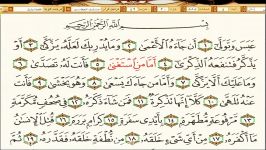 بِسْمِ اللَّهِ الرَّحْمَنِ الرَّحِيمِ
عَبَسَ وَتَوَلَّىٰ ١ أَن جَاءَهُ الْأَعْمَىٰ ٢ وَمَا يُدْرِيكَ لَعَلَّهُ يَزَّكَّىٰ ٣ أَوْ
يَذَّكَّرُ فَتَنفَعَهُ الذِّكْرَىٰ ٤ أَمَّا مَنِ اسْتَغْنَىٰ ٥ فَأَنتَ لَهُ تَصَدَّىٰ ٦
وَمَا عَلَيْكَ أَلَّا يَزَّكَّىٰ ٧ وَأَمَّا مَن جَاءَكَ يَسْعَىٰ ٨ وَهُوَ يَخْشَىٰ ٩ فَأَنتَ
عَنْهُ تَلَهَّىٰ ١٠ كَلَّا إِنَّهَا تَذْكِرَةٌ ١١ فَمَن شَاءَ ذَكَرَهُ ١٢ فِي صُحُفٍ مُّكَرَّمَةٍ
١٣ مَّرْفُوعَةٍ مُّطَهَّرَةٍ ١٤ بِأَيْدِي سَفَرَةٍ ١٥ كِرَامٍ بَرَرَةٍ ١٦ قُتِلَ الْإِنسَانُ
مَا أَكْفَرَهُ ١٧ مِنْ أَيِّ شَيْءٍ خَلَقَهُ ١٨ مِن نُّطْفَةٍ خَلَقَهُ فَقَدَّرَهُ ١٩ ثُمَّ